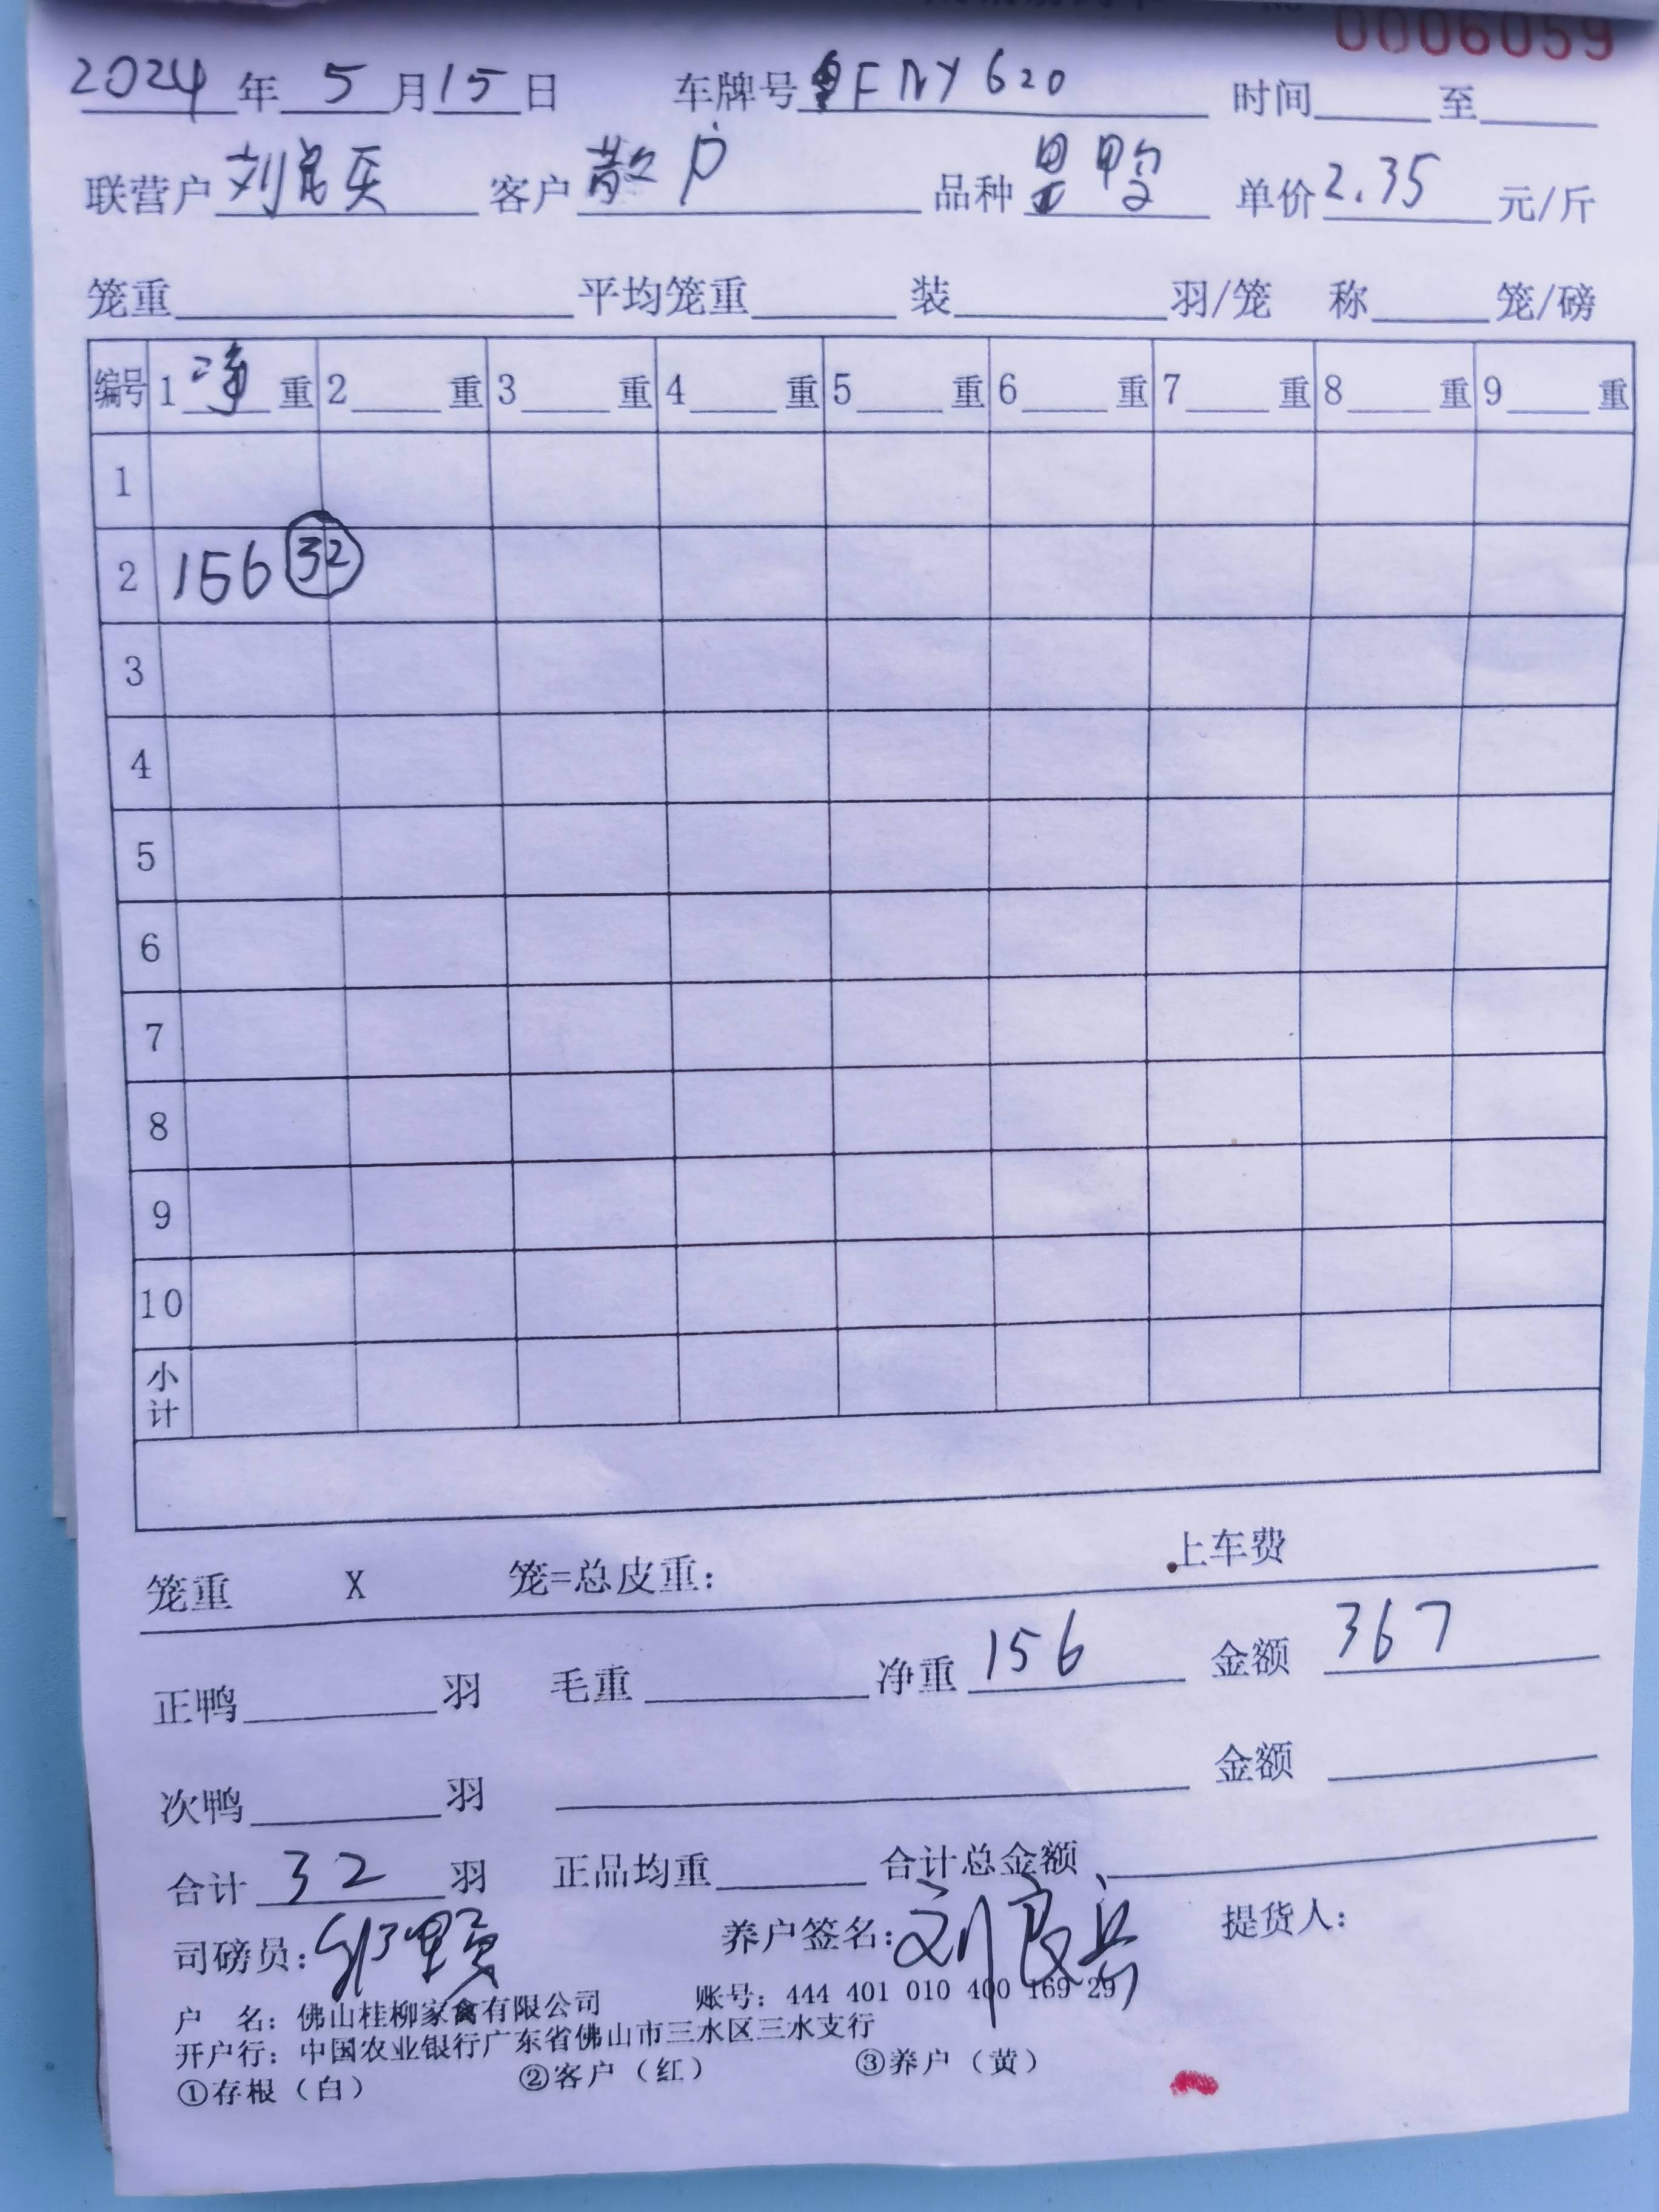 0006059
2024年5月15日 车牌号 FNY620 时间 至
联营户 刘 客户 散户 品种 鸭 单价 2.35 元/斤
笼重 平均笼重 装 羽/笼 称 笼/磅
编号 1 净 重 2 重 3 重 4 重 5 重 6 重 7 重 8 重 9 重
1
2 156 32
3
4
5
6
7
8
9
10
小计
笼重 X 笼=总皮重: 上车费
正鸭 羽 毛重 净重 156 金额 367
次鸭 羽 金额
合计 32 羽 正品均重 合计总金额
司磅员: 养户签名: 刘良 提货人:
户 名: 佛山桂柳家禽有限公司 账号: 444 401 010 400 169 297
开户行: 中国农业银行广东省佛山市三水区三水支行
①存根（白） ②客户（红） ③养户（黄）